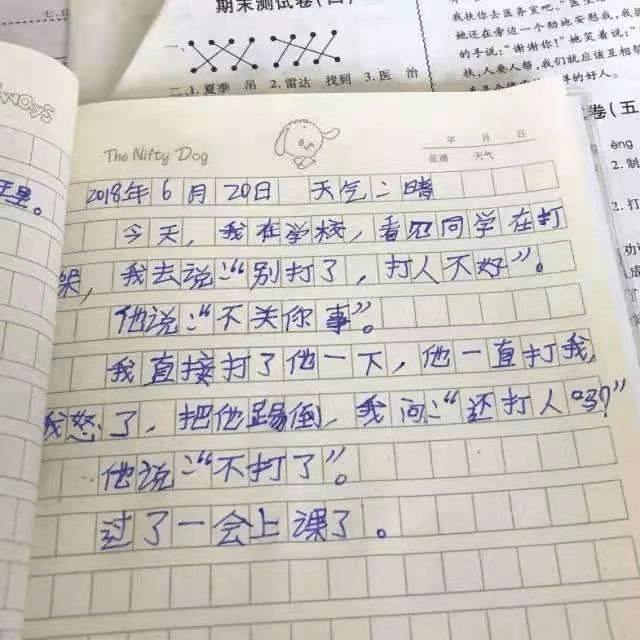 期末测试卷(四)
二、1. 夏季 吊 2. 雷达 找到 3. 医 治
我扶你去医务室吧。"
她还在旁边一个劲地安慰我,我
的手说:"谢谢你!"她笑着说:"
扶,人要人帮,我们就应该互相帮
样的好人。
卷(五
èng
2. 制
2. 打
成
The Nifty Dog
年 月 日
星期 天气
2018年6月20日 天气：晴
今天，我在学校，看见同学在打
架，我去说：“别打了，打人不好”。
他说：“不关你事”。
我直接打了他一下，他一直打我，
我怒了，把他踢倒，我问：“还打人吗？”
他说：“不打了”。
过了一会上课了。